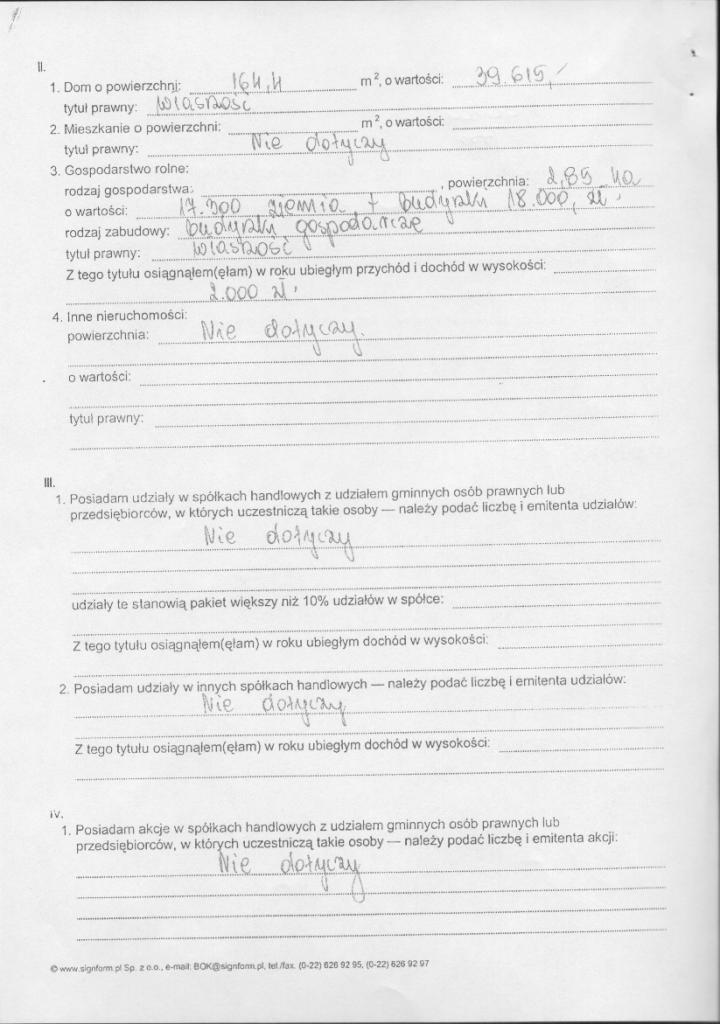 II.
1. Dom o powierzchni: 164,4 m², o wartości: 39.615,-
tytuł prawny: własność
2. Mieszkanie o powierzchni: m², o wartości:
tytuł prawny: Nie dotyczy
3. Gospodarstwo rolne:
rodzaj gospodarstwa: , powierzchnia: 2,85 ha
o wartości: 17.300 ziemia + budynki 18.000, zł.
rodzaj zabudowy: budynki gospodarcze
tytuł prawny: własność
Z tego tytułu osiągnąłem(ęłam) w roku ubiegłym przychód i dochód w wysokości:
2.000 zł.
4. Inne nieruchomości:
powierzchnia: Nie dotyczy.
o wartości:
tytuł prawny:
III.
1. Posiadam udziały w spółkach handlowych z udziałem gminnych osób prawnych lub
przedsiębiorców, w których uczestniczą takie osoby — należy podać liczbę i emitenta udziałów:
Nie dotyczy
udziały te stanowią pakiet większy niż 10% udziałów w spółce:
Z tego tytułu osiągnąłem(ęłam) w roku ubiegłym dochód w wysokości:
2. Posiadam udziały w innych spółkach handlowych — należy podać liczbę i emitenta udziałów:
Nie dotyczy
Z tego tytułu osiągnąłem(ęłam) w roku ubiegłym dochód w wysokości:
IV.
1. Posiadam akcje w spółkach handlowych z udziałem gminnych osób prawnych lub
przedsiębiorców, w których uczestniczą takie osoby — należy podać liczbę i emitenta akcji:
Nie dotyczy
© www.signform.pl Sp. z o.o., e-mail: BOK@signform.pl, tel./fax. (0-22) 626 92 95, (0-22) 626 92 97